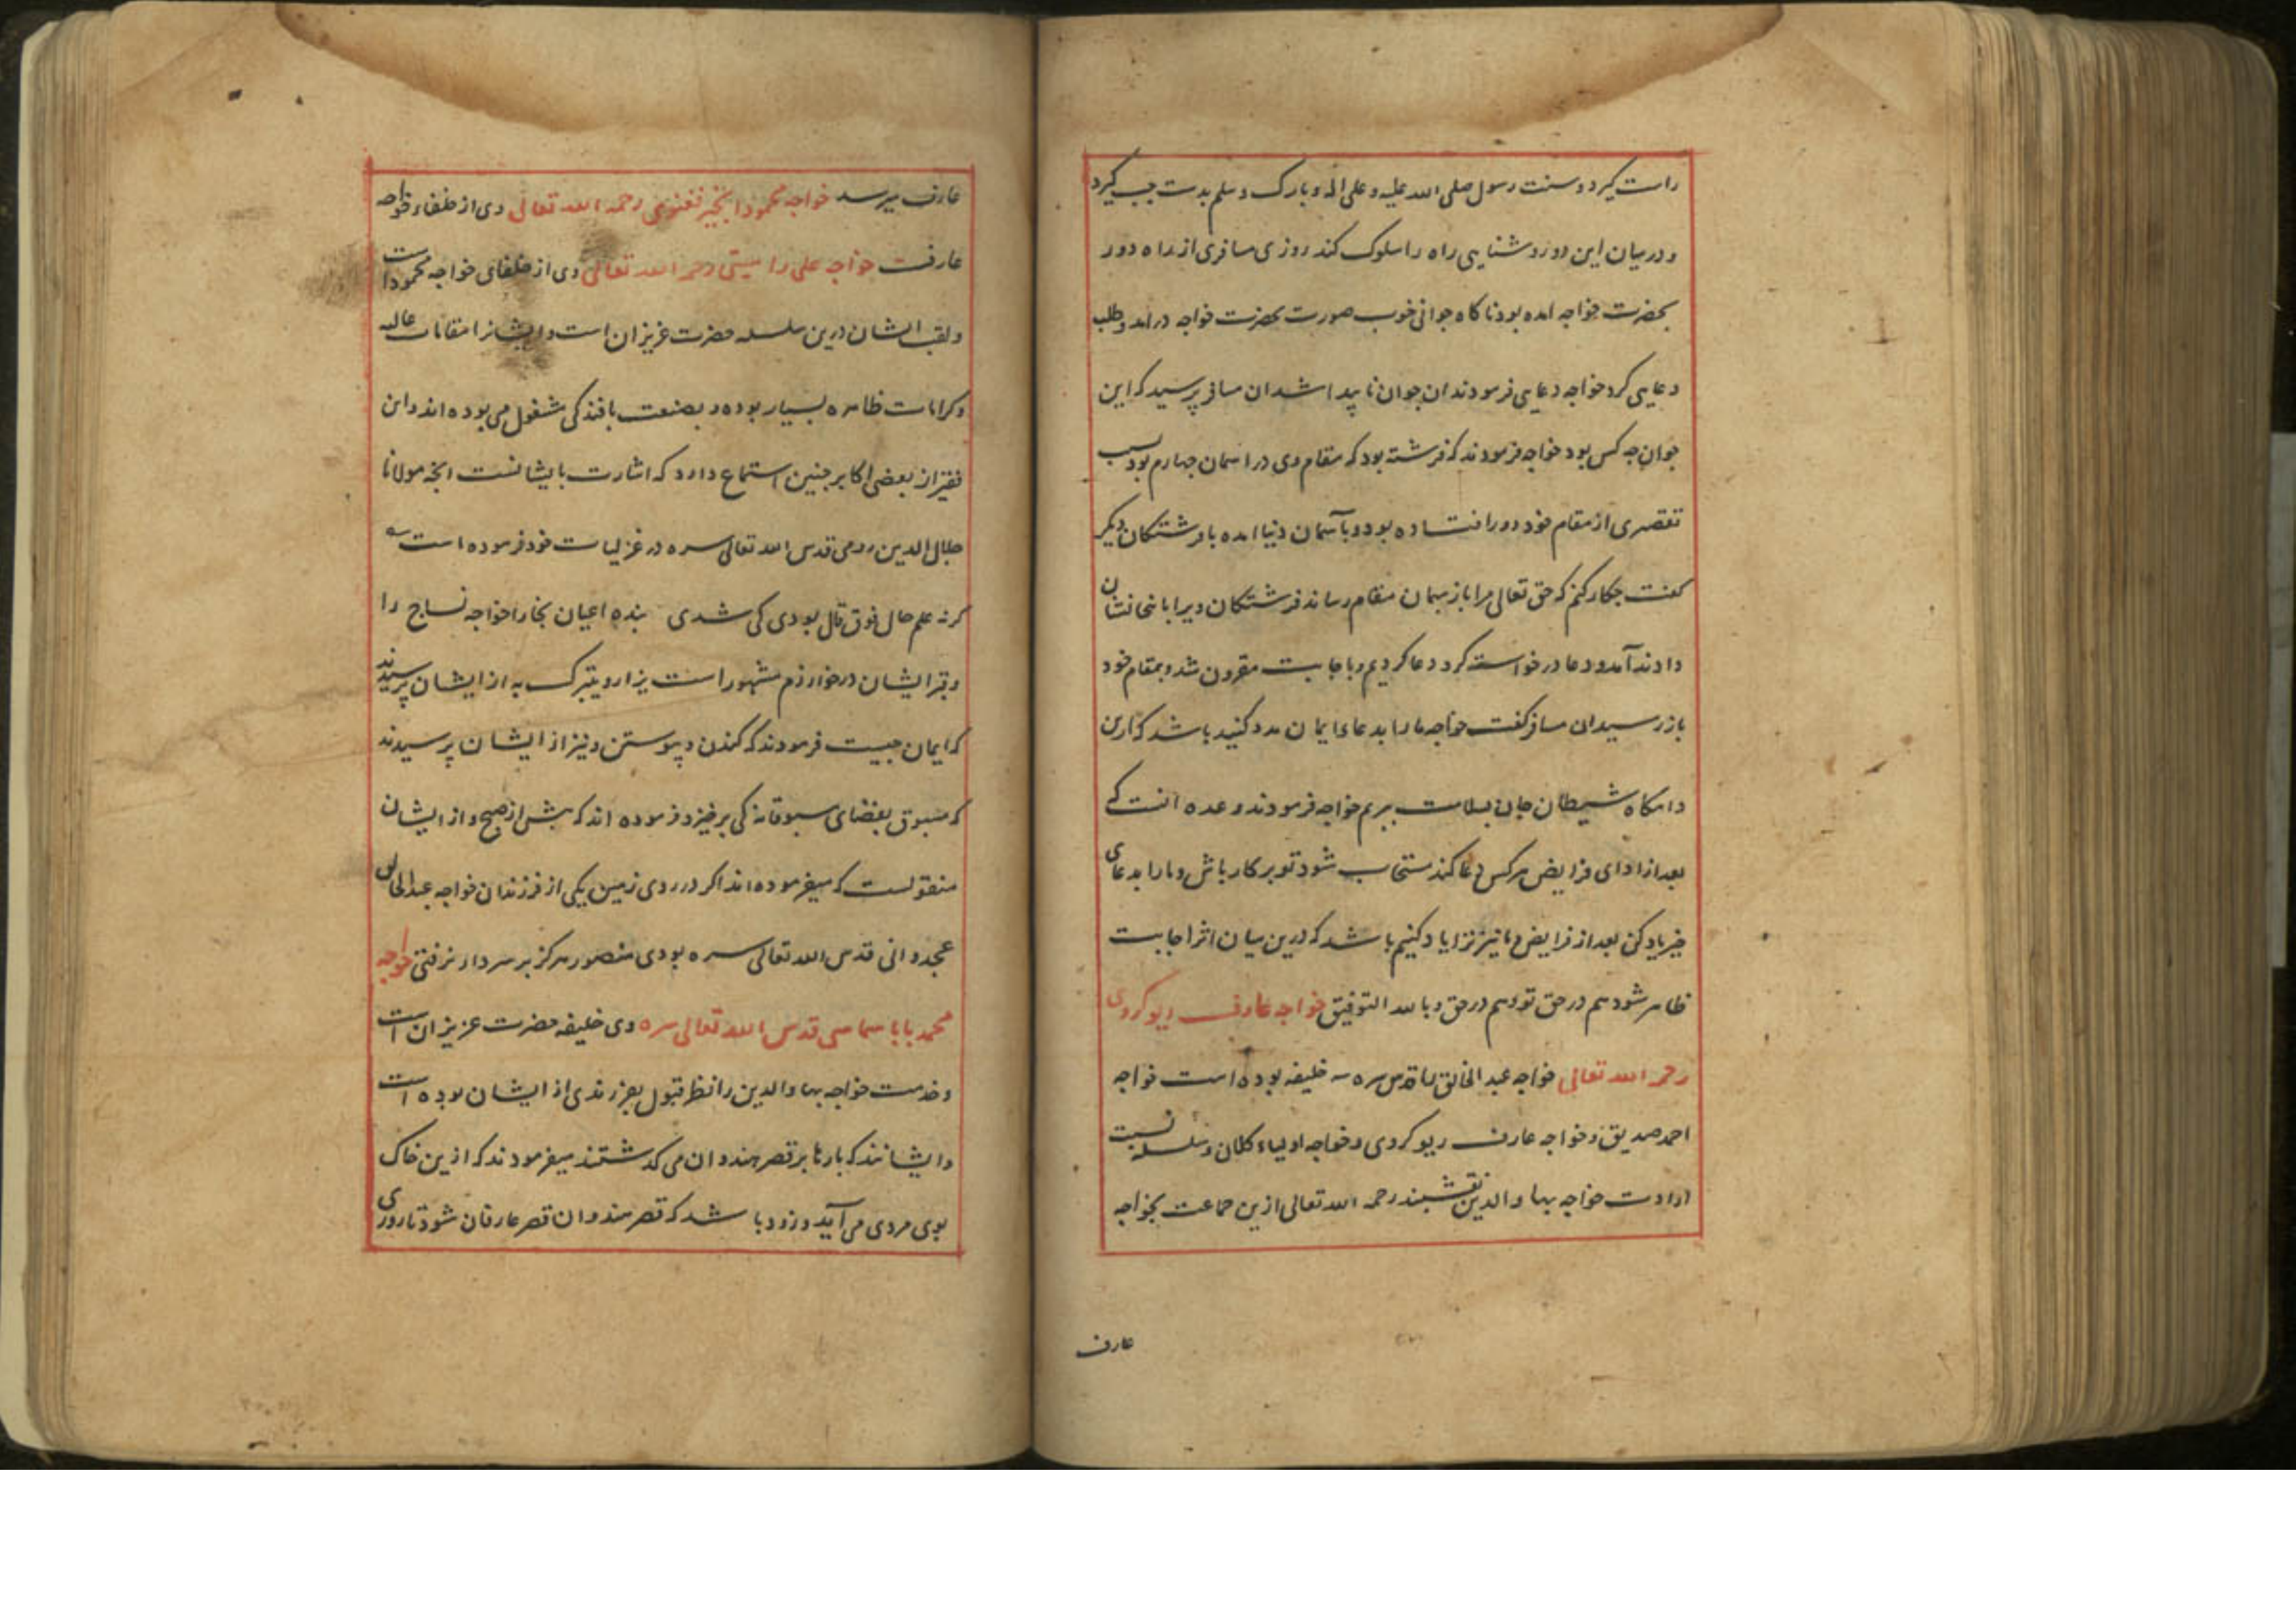 راست گیرد و سنت رسول صلی الله علیه و علی اله و بارک و سلم بدست چپ گیرد
و درمیان این دو روشنایی راه را سلوک کند روزی مسافری از راه دور
بحضرت خواجه امده بود ناکاه جوانی خوب صورت بحضرت خواجه درامد و طلب
دعایی کرد خواجه دعایی فرمودند ان جوان ناپیدا شد ان مسافر پرسید که این
جوان جه کس بود خواجه فرمودند که فرشته بود که مقام وی در اسمان جهارم بود بسبب
تقصیری از مقام خود دور افتاده بود و بآسمان دنیا امده با فرشتکان دیکر
کفت جکار کنم که حق تعالی مرا باز بهمان مقام رساند فرشتکان ویرا باینجا نشان
دادند آمد و دعا درخواست کرد دعا کردیم و باجابت مقرون شد و بمقام خود
باز رسید ان مسافر کفت خواجه ما را بدعای ایمان مدد کنید باشد که ازین
دامکاه شیطان جان بسلامت بریم خواجه فرمودند وعده انست که
بعد از ادای فرایض هر کس دعا کند مستجاب شود تو بر کار باش و ما را بدعای
خیر یاد کن بعد از فرایض ما نیز ترا یاد کنیم باشد که درین میان اثر اجابت
ظاهر شود هم در حق تو و هم در حق و بالله التوفیق خواجه عارف ریوکروی
رحمه الله تعالی خواجه عبد الخالق را قدس سره سه خلیفه بوده است خواجه
احمد صدیق و خواجه عارف ریوکروی و خواجه اولیاء کلان و سلسله نسبت
ارادت خواجه بهاء والدین نقشبند رحمه الله تعالی ازین جماعت بخواجه
عارف
عارف میرسد خواجه محمود انجیر فغنوی رحمه الله تعالی وی از خلفاء خواجه
عارفست خواجه علی رامیتی رحمه الله تعالی وی از خلفای خواجه محمود است
و لقب ایشان درین سلسله حضرت عزیزان است و ایشانرا مقامات عالیه
و کرامات ظاهره بسیار بوده و بصنعت بافندکی مشغول می بوده اند و این
فقیر از بعضی اکابر جنین استماع دارد که اشارت بایشانست انجه مولانا
جلال الدین رومی قدس الله تعالی سره در غزلیات خود فرموده است
کر نه علم حال فوق قال بودی کی شدی بنده اعیان بخارا خواجه نساج را
و قبر ایشان در خوارزم مشهور است یزار و یتبرک به از ایشان پرسیدند
که ایمان جیست فرمودند که کندن و پیوستن و نیز از ایشان پرسیدند
که مسبوق بقضای مسبوقانه کی برخیزد فرموده اند که پیش از صبح و از ایشان
منقولست که میفرموده اند اکر در روی زمین یکی از فرزندان خواجه عبد الخالق
عجدوانی قدس الله تعالی سره بودی منصور هرکز بر سر دار نرفتی خواجه
محمد بابا سماسی قدس الله تعالی سره وی خلیفه حضرت عزیزان است
و خدمت خواجه بهاء والدین را نظر قبول بفرزندی از ایشان بوده است
و ایشانند که بارها بر قصر هندوان می کذشتند میفرمودند که ازین خاک
بوی مردی می آید و زود باشد که قصر هندوان قصر عارفان شود تا روزی